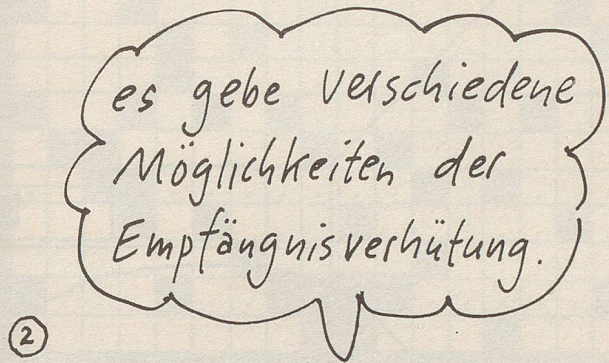 es gebe verschiedene
Möglichkeiten der
Empfängnisverhütung.
②